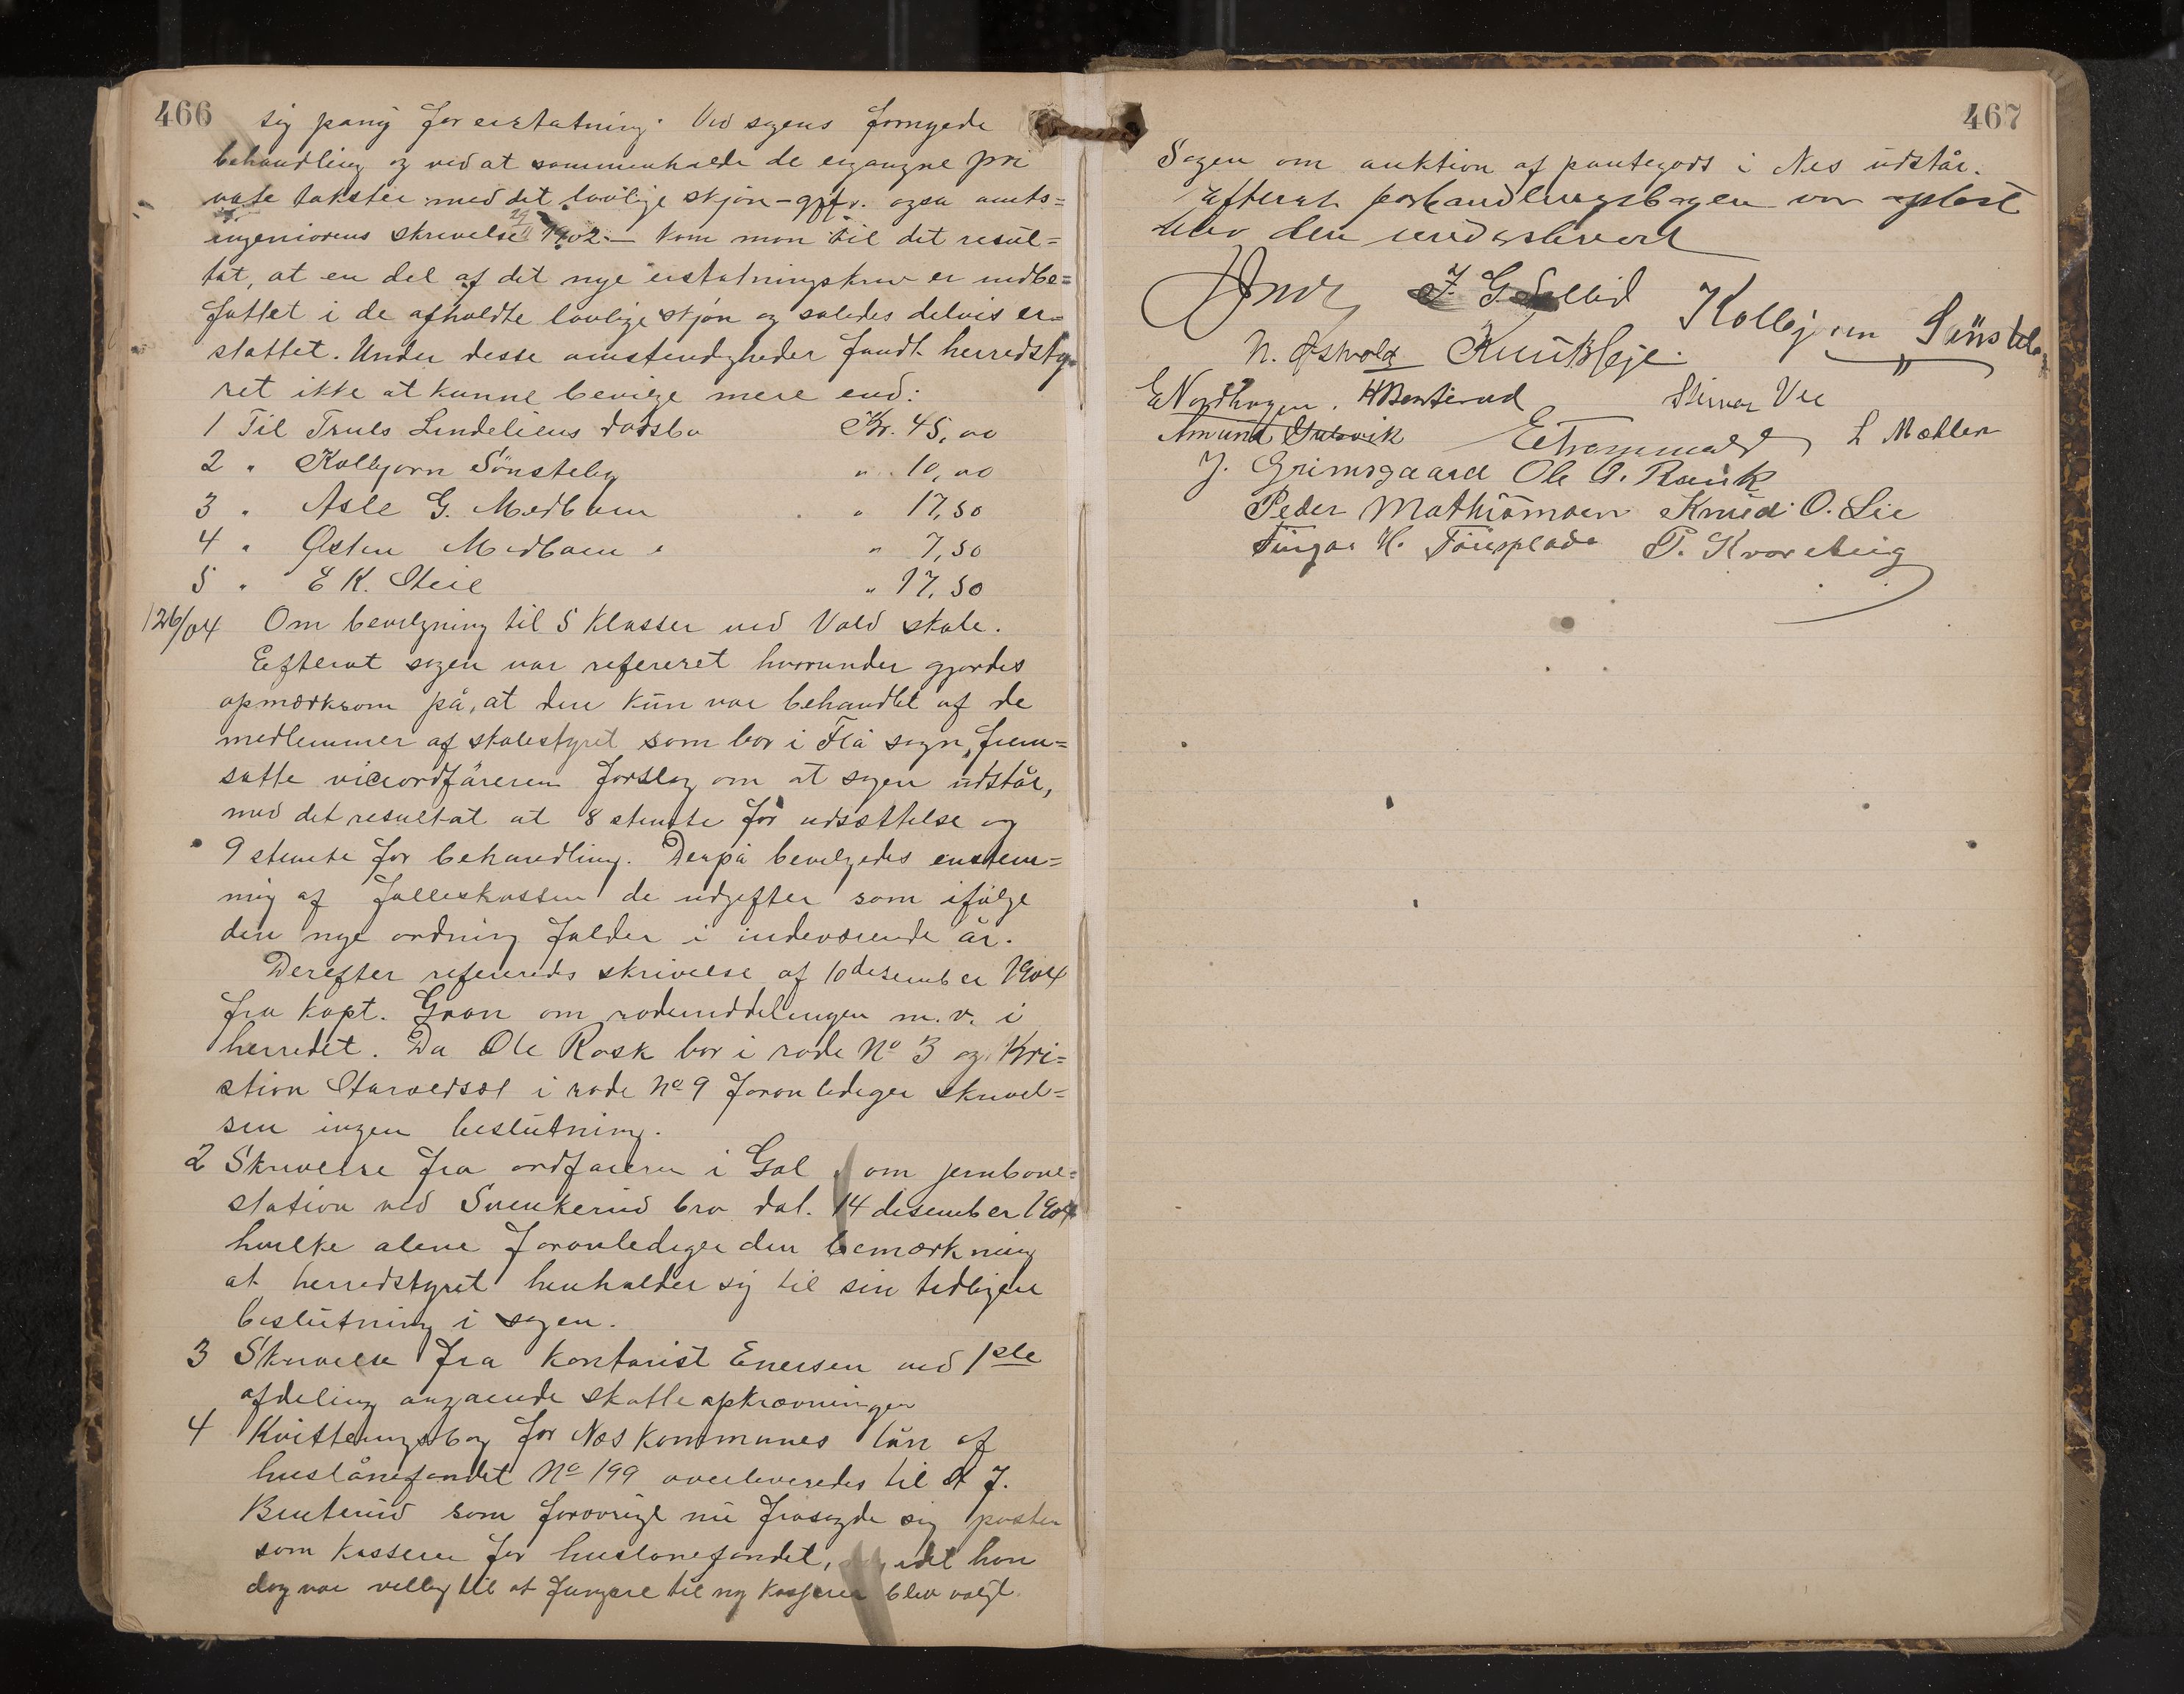 466
sig pany for erstatning. Ved sagens fornyede
behandling og ved at sammenholde de ergangne pri
vate takster med det lovlige skjøn - gjfr. også amts=
ingeniørens skrivelse 29/11 1902 - kom man til det resul=
tat, at en del af det nye erstatningskrav er indbe=
fattet i de afholdte lovlige skjøn og således delvis er=
stattet. Under desse omstendigheder fandt herredsty=
ret ikke at kunne bevilge mere end:
1 Til Truls Lindeliens dødsbo Kr. 45,00
2 " Kolbjørn Sønsteby " 10,00
3 " Asle G. Medboen " 17,50
4 " Østen Medboen " 7,50
5 " E K. Steie " 17,50
126/04 Om bevilgning til 5 klasser ved Vold skole.
Efterat sagen var refereret hvorunder gjordes
opmærksom på, at den kun var behandlet af de
medlemmer af skolestyret som bor i Flå sogn, frem=
satte viceordføreren forslag om at sagen udstår,
med det resultat at 8 stemte for udsættelse og
9 stemte for behandling. Derpå bevilgedes enstem=
mig af fælleskassen de udgifter som ifølge
den nye ordning falder i indeværende år.
Derefter refereredes skrivelse af 10 desember 1904
fra kapt. Gran om rodeinddelingen m.v. i
herredet. Da Ole Rask bor i rode No 3 og Kri=
stian Starvedsøl i rode No 9 foranlediger skrivel=
sen ingen beslutning.
2 Skrivelse fra ordføreren i Gol om jernbane=
station ved Svenkerud bro dat. 14 desember 1904
hvilke alene foranlediger den bemærkning
at herredstyret henholder sig til sin tidligere
beslutning i sagen.
3 Skrivelse fra kontorist Enersen ved 1ste
afdeling angående skatteopkrævningen
4 Kvitteringsbog for Nes kommunes lån af
huslånefondet No 199 overleveredes til H J.
Benterud som forøvrigt nu frasagde sig posten
som kasserer for huslånefondet, idet han
dog var villig til at fungere til ny kasserer blev valgt.
467
Sagen om auktion af pantegods i Nes udstår.
Efterat forhandlingsbogen var oplæst
blev den underskrevet
J. G. Sellid Kolbjørn Sønsteby
N. Østvold Knut Bleje.
E Nordhagen. H Benterud Steinar Vee
Amund Gulsvik E Trommald L Mæhlen
J. Grimsgaard Ole A. Rauk
Peder Mathismoen Knud O. Lie
Tingar H. Fønsplads T. Kvarteig